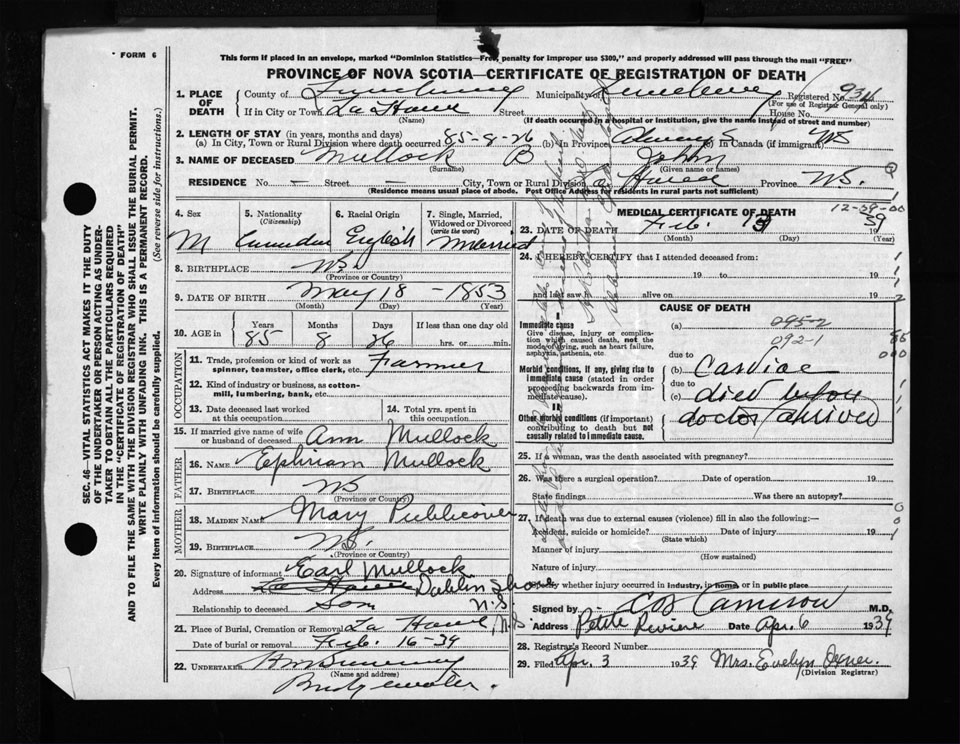 FORM 6
This form if placed in an envelope, marked "Dominion Statistics—Free, penalty for improper use $300," and properly addressed will pass through the mail "FREE"
PROVINCE OF NOVA SCOTIA—CERTIFICATE OF REGISTRATION OF DEATH
1. PLACE OF DEATH County of Lunenburg Municipality of Lunenburg Registered No. 934
(For use of Registrar General only)
If in City or Town La Have Street House No.
(Name) (If death occurred in a hospital or institution, give the name instead of street and number)
2. LENGTH OF STAY (in years, months and days)
(a) In City, Town or Rural Division where death occurred 85-8-26 (b) In Province Always (c) In Canada (if immigrant) NS
3. NAME OF DECEASED Mullock B John
(Surname) (Given name or names)
RESIDENCE No. — Street — City, Town or Rural Division La Have Province NS.
(Residence means usual place of abode. Post Office Address for residents in rural parts not sufficient)
4. Sex M
5. Nationality (Citizenship) Canadian
6. Racial Origin English
7. Single, Married, Widowed or Divorced (write the word) Married
8. BIRTHPLACE NS.
(Province or Country)
9. DATE OF BIRTH May 18 - 1853
(Month) (Day) (Year)
10. AGE in Years Months Days If less than one day old
85 8 26 hrs. or min.
OCCUPATION
11. Trade, profession or kind of work as spinner, teamster, office clerk, etc. Farmer
12. Kind of industry or business, as cotton-mill, lumbering, bank, etc.
13. Date deceased last worked at this occupation
14. Total yrs. spent in this occupation
15. If married give name of wife or husband of deceased Ann Mullock
FATHER
16. Name Ephriam Mullock
17. Birthplace NS
(Province or Country)
MOTHER
18. Maiden Name Mary Publicover
19. Birthplace NS.
(Province or Country)
20. Signature of informant Earl Mullock
Address La Have Dublin Shore N.S.
Relationship to deceased Son
21. Place of Burial, Cremation or Removal La Have N.S.
Date of burial or removal Feb. 16-39
22. UNDERTAKER
(Name and address)
Bridgewater.
MEDICAL CERTIFICATE OF DEATH
12-59-00
23. DATE OF DEATH Feb. 13 39
(Month) (Day) (Year)
24. I HEREBY CERTIFY that I attended deceased from:
19 to 19
and last saw h alive on 19
CAUSE OF DEATH
I
Immediate cause
Give disease, injury or complication which caused death, not the mode of dying, such as heart failure, asphyxia, asthenia, etc.
Morbid conditions, if any, giving rise to immediate cause (stated in order proceeding backwards from immediate cause).
II
Other morbid conditions (if important) contributing to death but not causally related to immediate cause.
(a) 095-2
092-1
due to
(b) Cardiac
due to
(c) died before
doctor arrived
25. If a woman, was the death associated with pregnancy?
26. Was there a surgical operation? Date of operation 19
State findings Was there an autopsy?
27. If death was due to external causes (violence) fill in also the following:—
Accident, suicide or homicide? Date of injury 19
(State which)
Manner of injury
(How sustained)
Nature of injury
Specify whether injury occurred in industry, in home, or in public place
Signed by C B Cameron M.D.
Address Petite Riviere Date Apr. 6 1939
28. Registrar's Record Number
29. Filed Apr. 3 1939 Mrs. Evelyn Oxner.
(Division Registrar)
SEC. 46—VITAL STATISTICS ACT MAKES IT THE DUTY
OF THE UNDERTAKER OR PERSON ACTING AS UNDER-
TAKER TO OBTAIN ALL THE PARTICULARS REQUIRED
IN THE "CERTIFICATE OF REGISTRATION OF DEATH"
AND TO FILE THE SAME WITH THE DIVISION REGISTRAR WHO SHALL ISSUE THE BURIAL PERMIT.
WRITE PLAINLY WITH UNFADING INK. THIS IS A PERMANENT RECORD.
Every item of information should be carefully supplied. (See reverse side for instructions.)